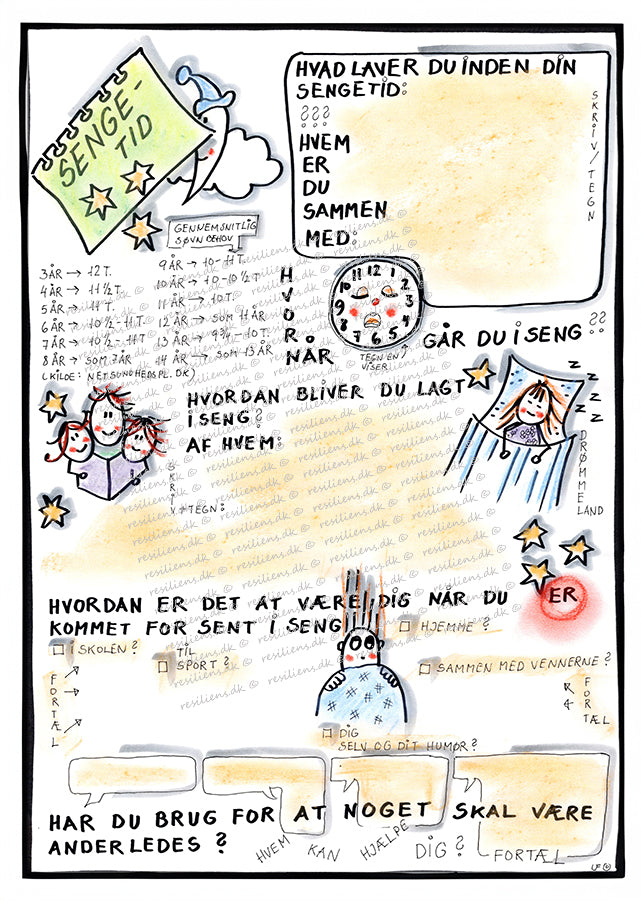 SENGE-
TID
HVAD LAVER DU INDEN DIN
SENGETID:
???
HVEM
ER
DU
SAMMEN
MED:
SKRIV/TEGN
GENNEMSNITLIG
SØVNBEHOV
3 ÅR → 12 T.
4 ÅR → 11 ½ T.
5 ÅR → 11 T.
6 ÅR → 10 ½ - 11 T.
7 ÅR → 10 ½ - 11 T
8 ÅR → SOM 7 ÅR
(KILDE: NETSUNDHEDSPL.DK)
9 ÅR → 10 - 11 T.
10 ÅR → 10 - 10 ½ T
11 ÅR → 10 T.
12 ÅR → SOM 11 ÅR
13 ÅR → 9 ¾ - 10 T.
14 ÅR → SOM 13 ÅR
HVORNÅR
12 1 2 3 4 5 6 7 8 9 10 11
TEGN EN/
VISER
GÅR DU I SENG ??
HVORDAN BLIVER DU LAGT
I SENG?
AF HVEM:
SKRIV + TEGN:
Z Z Z Z
DRØMMELAND
resiliens.dk ©
HVORDAN ER DET AT VÆRE DIG NÅR DU ER
KOMMET FOR SENT I SENG
HJEMME?
I SKOLEN?
TIL
SPORT?
SAMMEN MED VENNERNE?
FORTÆL
FORTÆL
DIG
SELV OG DIT HUMØR?
HAR DU BRUG FOR AT NOGET SKAL VÆRE
ANDERLEDES?
HVEM KAN HJÆLPE DIG?
FORTÆL